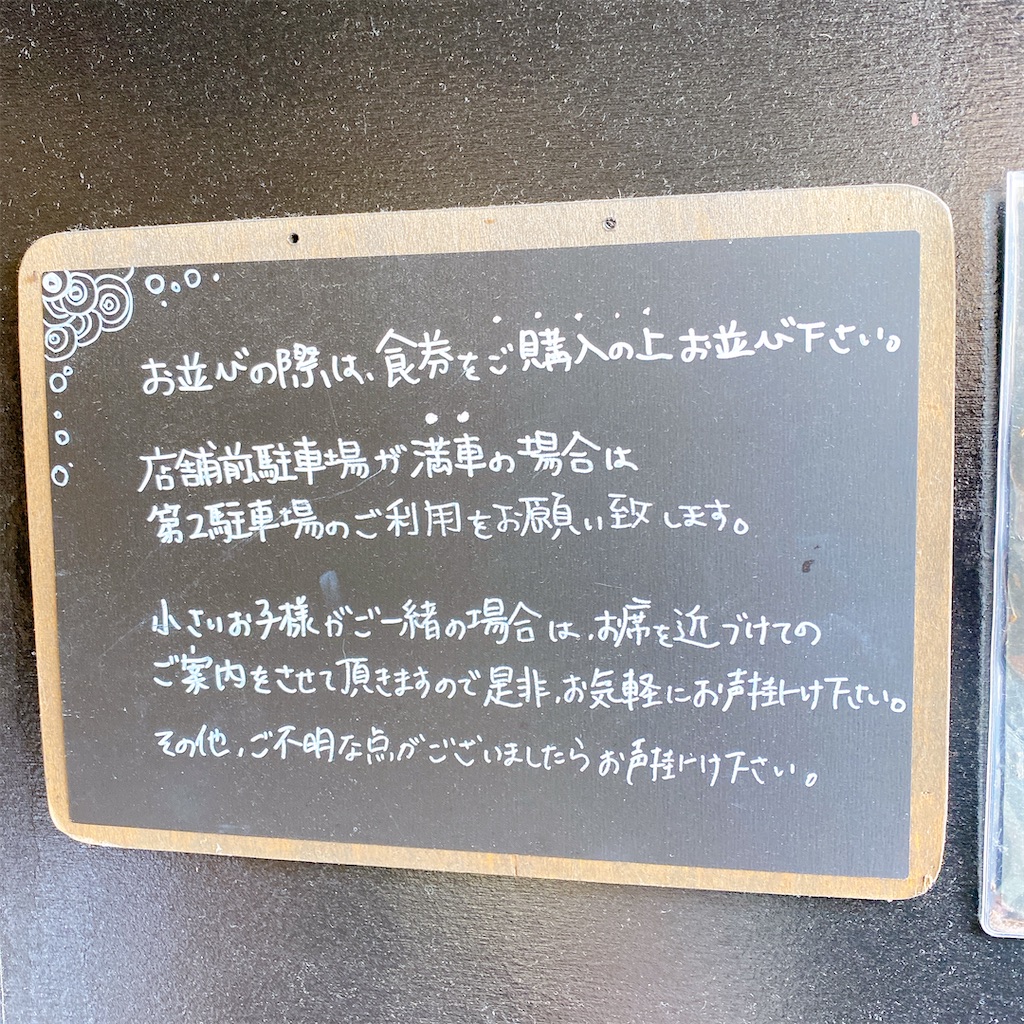 お並びの際は、食券をご購入の上お並び下さい。
店舗前駐車場が満車の場合は
第2駐車場のご利用をお願い致します。
小さいお子様がご一緒の場合は、お席を近づけての
ご案内をさせて頂きますので是非、お気軽にお声掛け下さい。
その他、ご不明な点がございましたらお声掛け下さい。